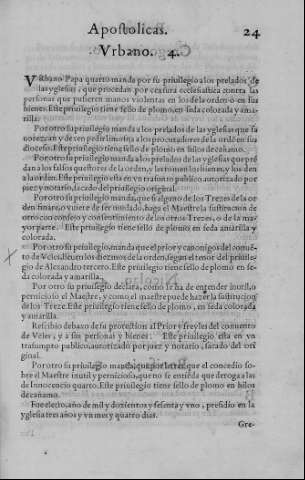 Apostolicas. 24
Vrbano. 4.
Vrbano Papa quarto manda por su priuilegio a los prelados de
las yglesias, que procedan por censura ecclesiastica contra las
personas que pusieren manos violentas en los de la orden o en sus
bienes. Este priuilegio tiene sello de plomo, en seda colorada y ama-
rilla.
Por otro su priuilegio manda a los prelados de las yglesias que
den a los procuradores de la ordē en sus
diocesis. Este priuilegio tiene sello de plomo en hilos de cañamo.
Por otro su priuilegio manda a los prelados de las yglesias que
dan a los falsos questores de la orden, y las tomen los bienes, y los den
a la orden. Este priuilegio esta en vn trasunto publico, autorizado por
juez y notario, sacado del priuilegio original.
Por otro su priuilegio manda, que si alguno de los Trezes de la or
den finare, o vuiere de ser mudado, haga el Maestre la sustitucion de
otro con consejo y consentimiento de los otros Trezes, o de la ma-
yor parte. Este priuilegio tiene sello de plomo en seda amarilla y
colorada.
Por otro su priuilegio, manda que el prior y canonigos del conuē-
to de Vcles, lleuen los diezmos de la orden, segun el tenor del priuile-
gio de Alexandro tercero. Este priuilegio tiene sello de plomo en se-
da colorada y amarilla.
Por otro su priuilegio declara, como se ha de entender inutil, o
pernicioso el Maestre, y como el maestre puede hazer la sustitucion
de los Treze. Este priuilegio tiene sello de plomo, en seda colorada
y amarilla.
Rescibio debaxo de su protection al Prior y freyles del conuento
de Vcles, y a sus personas y bienes. Este priuilegio esta en vn
trasumpto publico, autorizado por juez y notario, sacado del ori
ginal.
Por otro su priuilegio manda, que por lo que el concedio so-
bre el Maestre inutil y pernicioso, que no se entiēda que deroga a las
de Innocencio quarto. Este priuilegio tiene sello de plomo en hilos
de cañamo.
Fue electo, año de mil y dozientos y sesenta y vno, presidio en la
yglesia tres años y vn mes y quatro dias.
Gre-